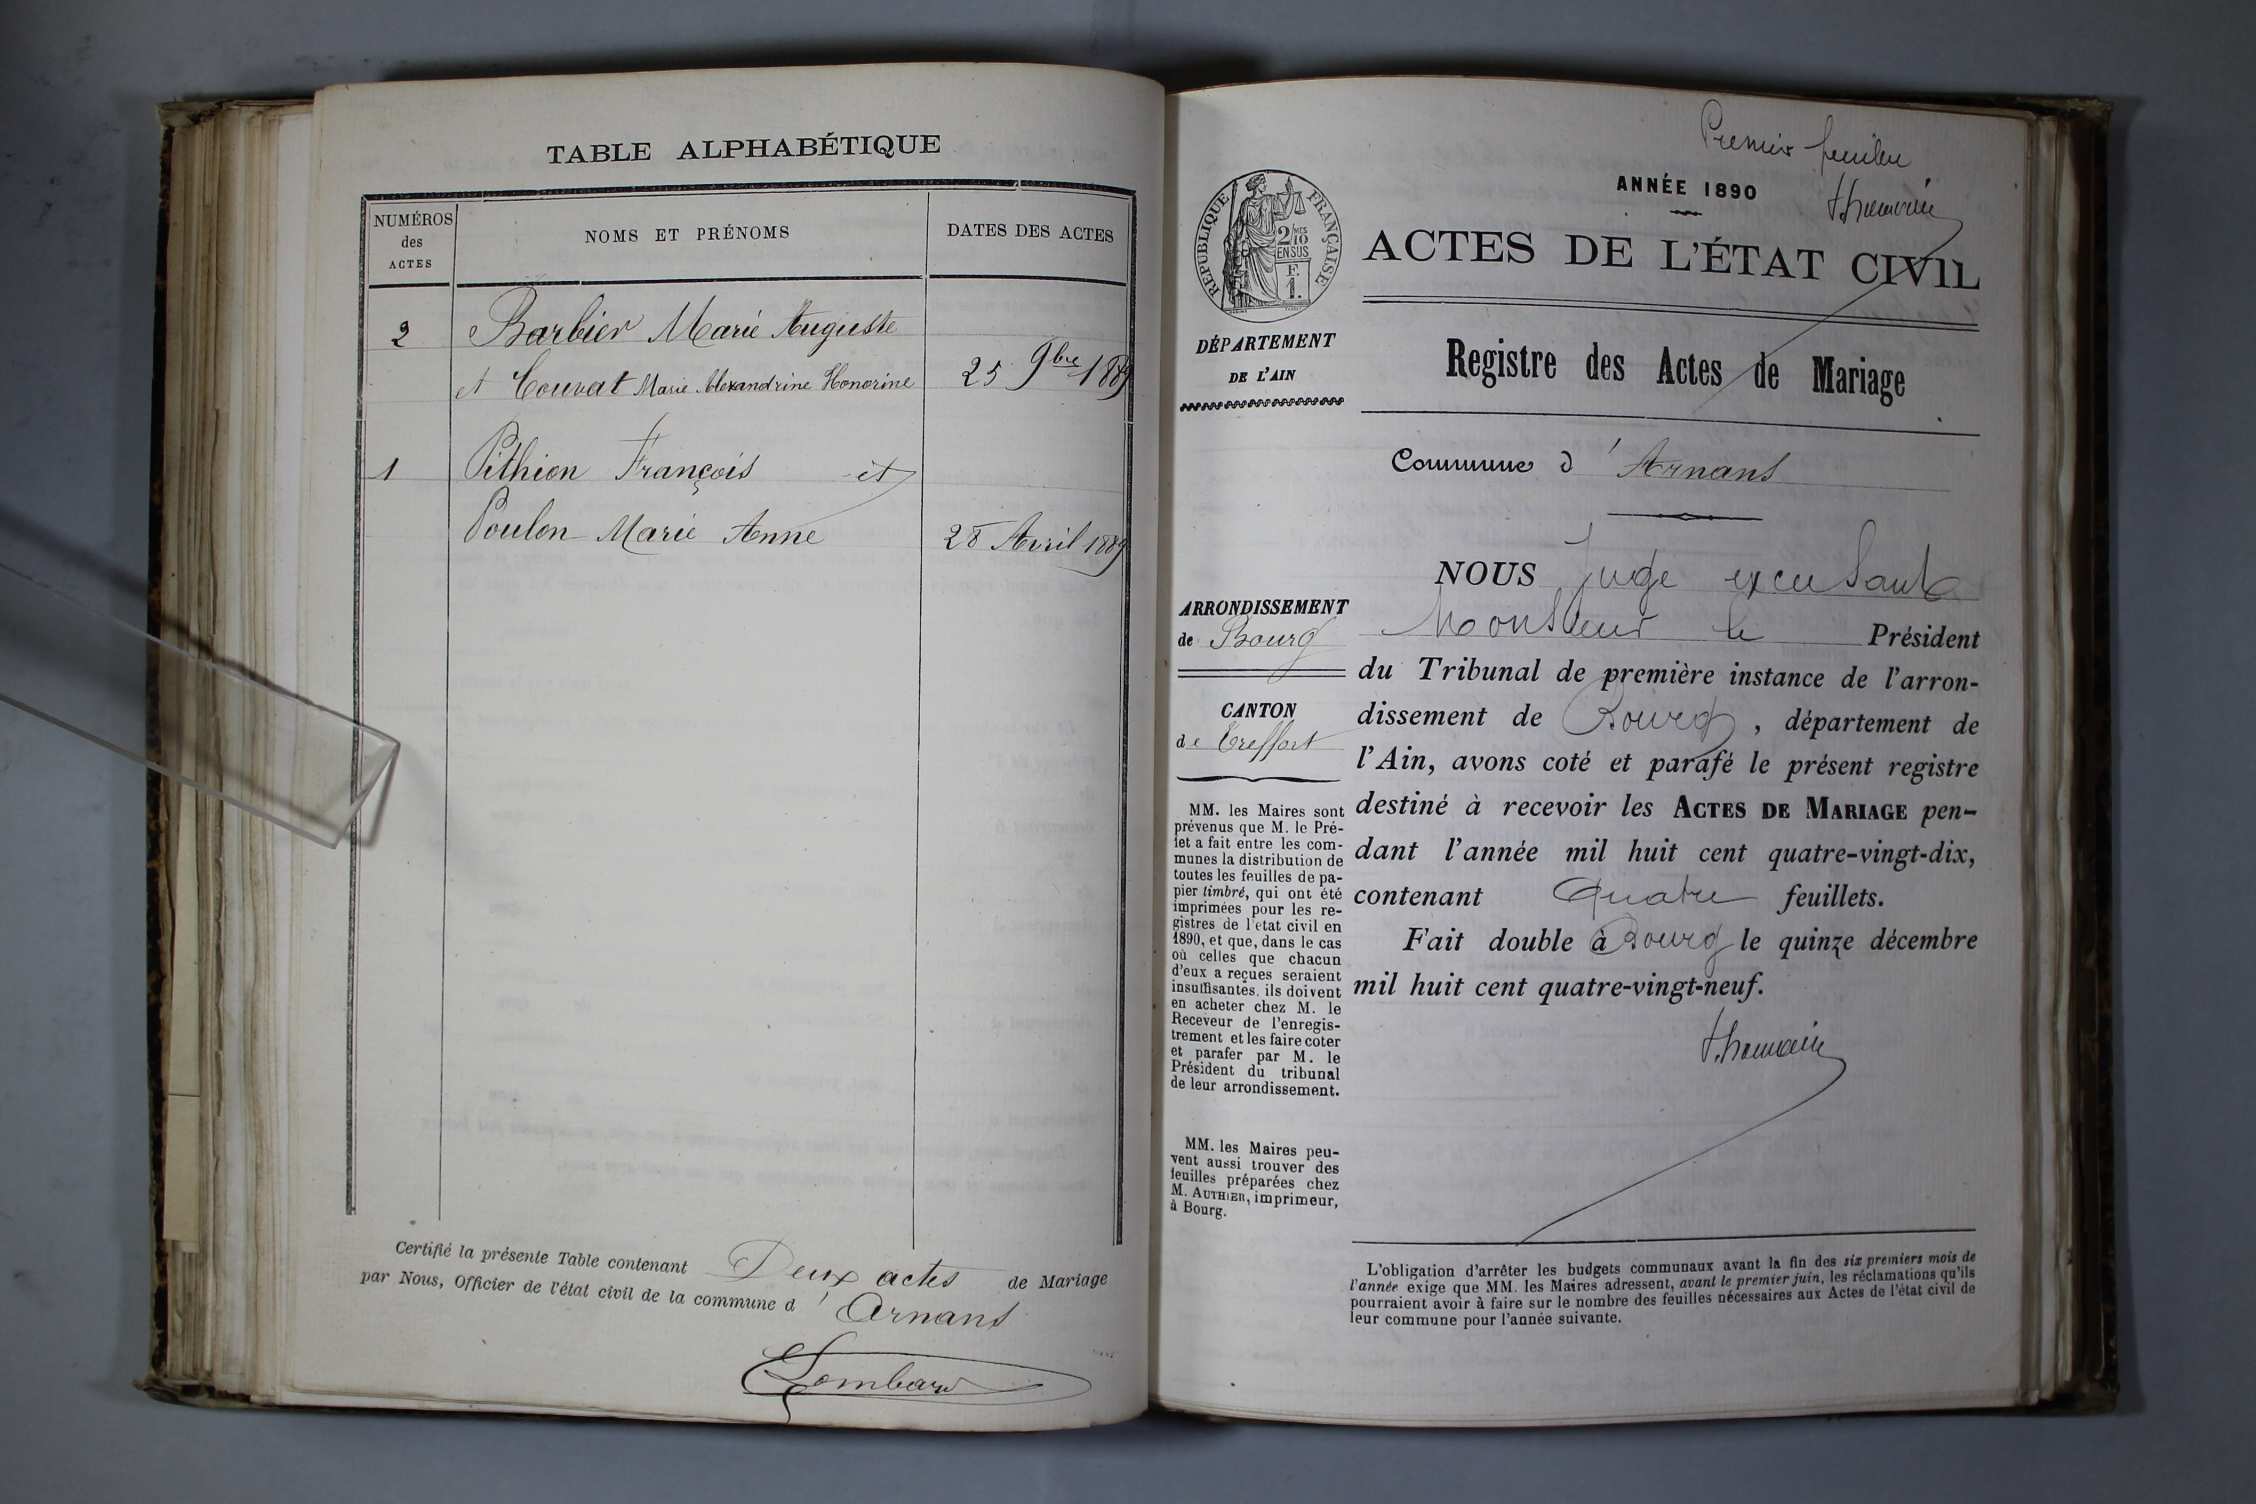 TABLE ALPHABÉTIQUE
NUMÉROS des ACTES
NOMS ET PRÉNOMS
DATES DES ACTES
2 Barbier Marie Auguste
et Couvat Marie Alexandrine Honorine 25 9bre 1889
1 Pithion François et
Poulon Marie Anne 28 Avril 1889
Certifié la présente Table contenant Deux actes de Mariage
par Nous, Officier de l'état civil de la commune d'Arnans
Lombard
Premier feuillet
ANNÉE 1890
RÉPUBLIQUE FRANÇAISE
2/10 MES
EN SUS
F.
1.
ACTES DE L'ÉTAT CIVIL
DÉPARTEMENT
DE L'AIN
Registre des Actes de Mariage
Commune d'Arnans
ARRONDISSEMENT
de Bourg
CANTON
de Treffort
MM. les Maires sont
prévenus que M. le Pré-
fet a fait entre les com-
munes la distribution de
toutes les feuilles de pa-
pier timbré, qui ont été
imprimées pour les re-
gistres de l'etat civil en
1890, et que, dans le cas
où celles que chacun
d'eux a reçues seraient
insuffisantes, ils doivent
en acheter chez M. le
Receveur de l'enregis-
trement et les faire coter
et parafer par M. le
Président du tribunal
de leur arrondissement.
MM. les Maires peu-
vent aussi trouver des
feuilles préparées chez
M. AUTHIER, imprimeur,
à Bourg.
NOUS Juge excusant
Monsieur le Président
du Tribunal de première instance de l'arron-
dissement de Bourg, département de
l'Ain, avons coté et parafé le présent registre
destiné à recevoir les ACTES DE MARIAGE pen-
dant l'année mil huit cent quatre-vingt-dix,
contenant Quatre feuillets.
Fait double à Bourg le quinze décembre
mil huit cent quatre-vingt-neuf.
L'obligation d'arrêter les budgets communaux avant la fin des six premiers mois de
l'année exige que MM. les Maires adressent, avant le premier juin, les réclamations qu'ils
pourraient avoir à faire sur le nombre des feuilles nécessaires aux Actes de l'état civil de
leur commune pour l'année suivante.